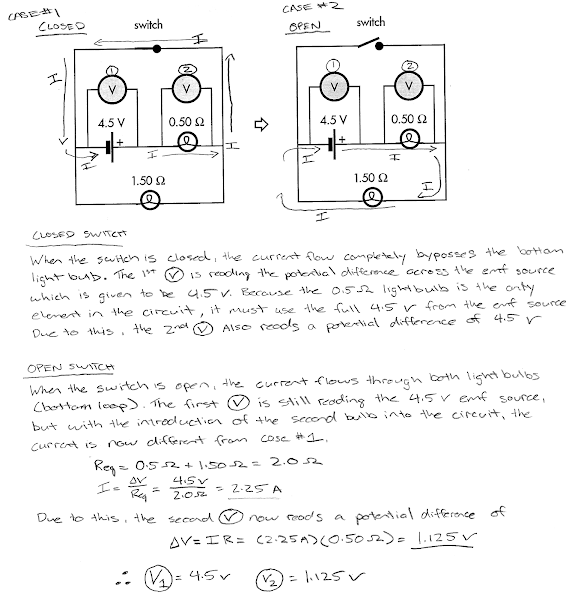 CASE #1
CLOSED
switch
CASE #2
OPEN
switch
I
I
1
2
V
V
4.5 V
0.50 Ω
+
I
I
I
1.50 Ω
1
2
V
V
4.5 V
0.50 Ω
+
I
I
1.50 Ω
I
I
CLOSED SWITCH
When the switch is closed, the current flow completely bypasses the bottom
light bulb. The 1st V is reading the potential difference across the emf source
which is given to be 4.5 V. Because the 0.5 Ω lightbulb is the only
element in the circuit, it must use the full 4.5 V from the emf source
Due to this, the 2nd V Also reads a potential difference of 4.5 V
OPEN SWITCH
When the switch is open, the current flows through both light bulbs
(bottom loop). The first V is still reading the 4.5 V emf source,
but with the introduction of the second bulb into the circuit, the
current is now different from case #1.
Req = 0.5 Ω + 1.50 Ω = 2.0 Ω
I = ΔV/Req = 4.5V/2.0Ω = 2.25 A
Due to this, the second V now reads a potential difference of
ΔV = IR = (2.25A)(0.50 Ω) = 1.125 V
∴ V1 = 4.5 V V2 = 1.125 V